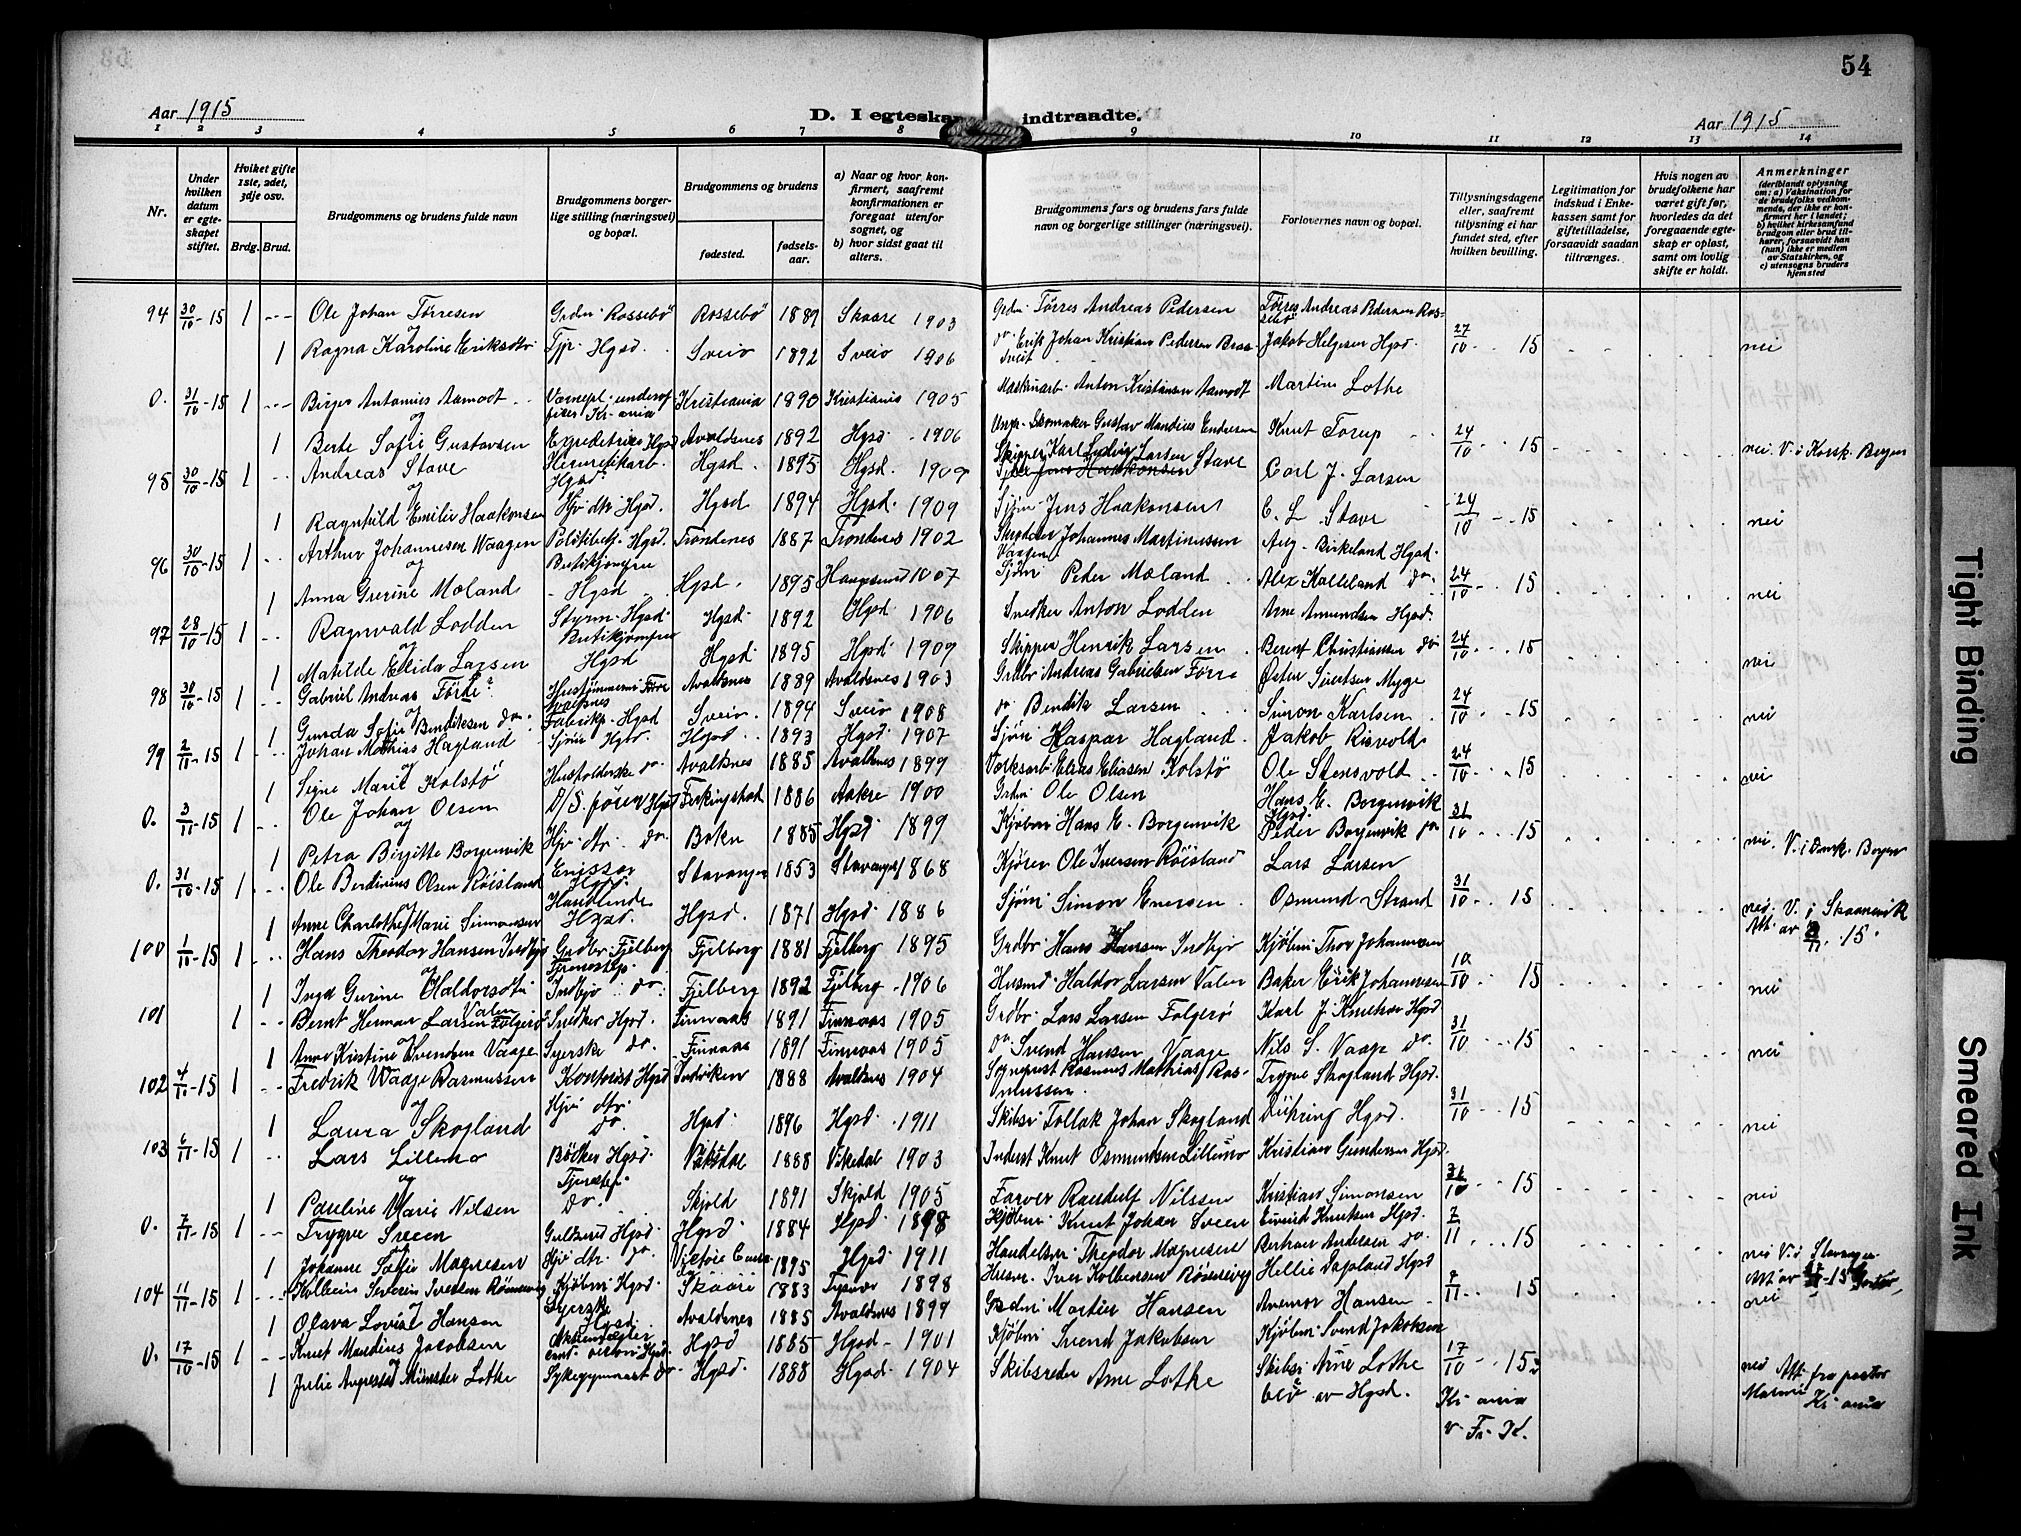 54
Aar 1915
D. I egteskap indtraadte.
Aar 1915
1 2 3 4 5 6 7 8 9 10 11 12 13 14
Nr.
Under hvilken datum er egteskapet stiftet.
Hvilket gifte 1ste, 2det, 3dje osv.
Brdg. Brud.
Brudgommens og brudens fulde navn
Brudgommens borgerlige stilling (næringsvei) og bopæl.
Brudgommens og brudens
fødested. fødselsaar.
a) Naar og hvor konfirmert, saafremt konfirmationen er foregaat utenfor sognet, og
b) hvor sidst gaat til alters.
Brudgommens fars og brudens fars fulde navn og borgerlige stillinger (næringsvei).
Forlovernes navn og bopæl.
Tillysningsdagene eller, saafremt tillysning ei har fundet sted, efter hvilken bevilling.
Legitimation for indskud i Enkekassen samt for giftetilladelse, forsaavidt saadan tiltrænges.
Hvis nogen av brudefolkene har været gift før, hvorledes da det foregaaende egteskap er opløst, samt om lovlig skifte er holdt.
Anmerkninger
(deriblandt oplysning om: a) Vaksination for de brudefolks vedkommende, der ikke er konfirmert her i landet; b) hvilket kirkesamfund brudgom eller brud tilhører, forsaavidt han (hun) ikke er medlem av Statskirken, og c) utensogns bruders hjemsted
94 30/10-15 1 Ole Johan Tørresen Grdm. Rossebø Rossebø 1889 Skaare 1903 Grdm. Tørres Andreas Pedersen Tørres Andreas Pedersen Rossebø
og
1 Ragna Karoline Eriksdtr Tjp. Hgsd. Sveio 1892 Sveio 1906 do Erik Johan Kristian Pedersen Jakob Helgesen Hgsd. 27/10 15 nei
0. 31/10-15 1 Birger Antonius Aamodt Kristiania 1890 Kristiania 1905 Maskinarb. Anton Kristiansen Aamodt Martin Lothe
og
1 Berte Sofie Gustavsen Hgsd Avaldsnes 1892 Hgsd 1906 Skomaker Gustav Mandius Endresen Knut Torup 24/10 15 nei. V. i Korsk. Bergen
95 30/10-15 1 Andreas Stave Hermetikarb. Hgsd. Hgsd. 1895 Hgsd. 1909 Skipper Karl Ludvig Larsen Stave Carl J. Larsen
og
1 Ragnhild Emilie Haakonsen Hjv. dtr. Hgsd. Hgsd 1894 Hgsd. 1909 Sjøm. Jens Haakonsen E. L. Stave 24/10 15 nei
96 30/10-15 1 Arthur Johannesen Waagen Politibetj. Hgsd. Trondenes 1887 Trondenes 1902 Johannes Martinussen Vaagen Aug. Birkeland Hgsd.
og
1 Anna Grerine Moland Butikjomfru Hgsd Hgsd. 1895 Haugesund 1907 Sjøm. Peder Moland Alex Kalleland do. 24/10 15 nei
97 28/10-15 1 Ragnvald Lodden Styrm. Hgsd. Hgsd. 1892 Hgsd. 1906 Snedker Anton Lodden Arne Amundsen Hgsd.
og
1 Matilde Elida Larsen Butikjomfru Hgsd Hgsd. 1895 Hgsd. 1909 Skipper Henrik Larsen Berent Christiansen do 24/10 15 nei
98 30/10-15 1 Gabriel Andreas Førde Avaldsnes Avaldsnes 1889 Avaldsnes 1903 Grdbr. Andreas Gabrielsen Førre Østen Sivertsen Myge
og
1 Gunda Sofie Bendiksen do. Fabrikp. Hgsd Sveio. 1894 Sveio 1908 do Bendik Larsen Simon Karlsen 24/10 15 nei
99 2/11-15 1 Johan Mathias Hagland Sjøm. Hgsd. Hgsd. 1893 Hgsd. 1907 Sjøm. Kaspar Hagland Jakob Risvold
og
1 Signe Marie Kolstø Husholderske do. Avaldsnes 1885 Avaldsnes 1899 Elias Eliasen Kolstø Ole Stensvold 24/10 15 nei
0. 3/11-15 1 Ole Johan Olsen D/S. fører Hgsd Ferkingstad 1886 Aakre 1900 Grdm. Ole Olsen Hans E. Borgenvik Hgsd.
og
1 Petra Birgitte Borgenvik Hjv. dtr. do. Bokn 1885 Hgsd. 1899 Kjøbm. Hans E. Borgenvik Peder Borgenvik do 31/10 15 nei. V. i Domk. Bergen
0. 31/10-15 1 Ole Berdinus Olsen Røisland Hgsd. Stavanger 1853 Stavanger 1868 Kjører Ole Iversen Røisland Lars Larsen
1 Anne Charlothe Marie Simonsen Handlende Hgsd. Hgsd. 1871 Hgsd. 1886 Sjøm. Simon Enersen Osmund Strand 31/10 15 nei. V. i Skaanevik Att. av 3/11. 15.
100 1/11-15 1 Hans Theodor Hansen Indbjo Grdbr. Fjelberg Fjelberg 1881 Fjelberg 1895 Grdbr. Hans Hansen Indbjo Kjøbm. Thov Johannesen
og
1 Inga Gurine Haldorsdtr Valen Indbjo do. Fjelberg 1892 Fjelberg 1906 Husmd. Haldor Larsen Valen Baker Erik Johannesen 10/10 15 nei
101 1 Bernt Herman Larsen Folgerø Snedker Hgsd. Finnaas 1891 Finnaas 1905 Grdbr. Lars Larsen Folgerø Karl J. Knutsen Hgsd
og
1 Anna Kristine Svendsen Vaage Syerske do. Finnaas 1891 Finnaas 1905 do. Svend Hansen Vaage Nils S. Vaage do. 31/10 15 nei
102 4/11-15 1 Fredrik Waage Rasmussen Kontorist Hgsd 1888 Avaldsnes 1904 Sogneprest Rasmus Mathias Rasmussen. Trygve Skogland Hgsd.
og
1 Laura Skogland Hjv. dtr. do. Hgsd. 1896 Hgsd. 1911 Skibsr. Tollak Johan Skogland Dühring Hgsd. 31/10 15 nei
103 6/11-15 1 Lars Lillemo Bødker Hgsd. Vikedal 1888 Vikedal 1903 Inderst Knut Osmundsen Lillemo Kristian Gundersen Hgsd.
og
1 Pauline Marie Nilsen Tjenestep. do. Skjold 1891 Skjold 1905 Farver Randulf Nilssen Kristian Simonsen 31/10 15 nei
0. 7/11-15 1 Trygve Sveen Guldsmed Hgsd. Hgsd. 1884 Hgsd. 1898 Kjøbm. Knut Johan Sveen Eivind Knutsen Hgsd.
og
1 Johanne Sofie Magnesen Hjv. dtr. do. 1895 Hgsd. 1911 Handelsm. Theodor Magnesen Bertran Andersen do. 7/11 15 nei V. i Stavanger
104 11/11-15 1 Kolbein Severin Iversen Kjøbm. Hgsd. Skaare 1883 1898 Iver Kolbensen Hellie Dagsland Hgsd
og
1 Olava Lovise Hansen Syerske Hgsd. Avaldsnes 1885 Avaldsnes 1899 Martin Hansen Hansen 15 nei
0. 17/10-15 1 Knut Mandius Jacobsen Hgsd 1885 Hgsd. 1901 Kjøbm. Svend Jakobsen Kjøbm. Svend Jakobsen
og
1 Julie Augusta Münster Lothe Sykegymnast do Hgsd. 1888 Hgsd. 1904 Skibsreder Arne Lothe Skibsr. Arne Lothe 17/10 15 nei Att. fra pastor
av Hgsd. Kr. ania
v. Fr. K.
Kr. ania
Tight Binding
Smeared Ink